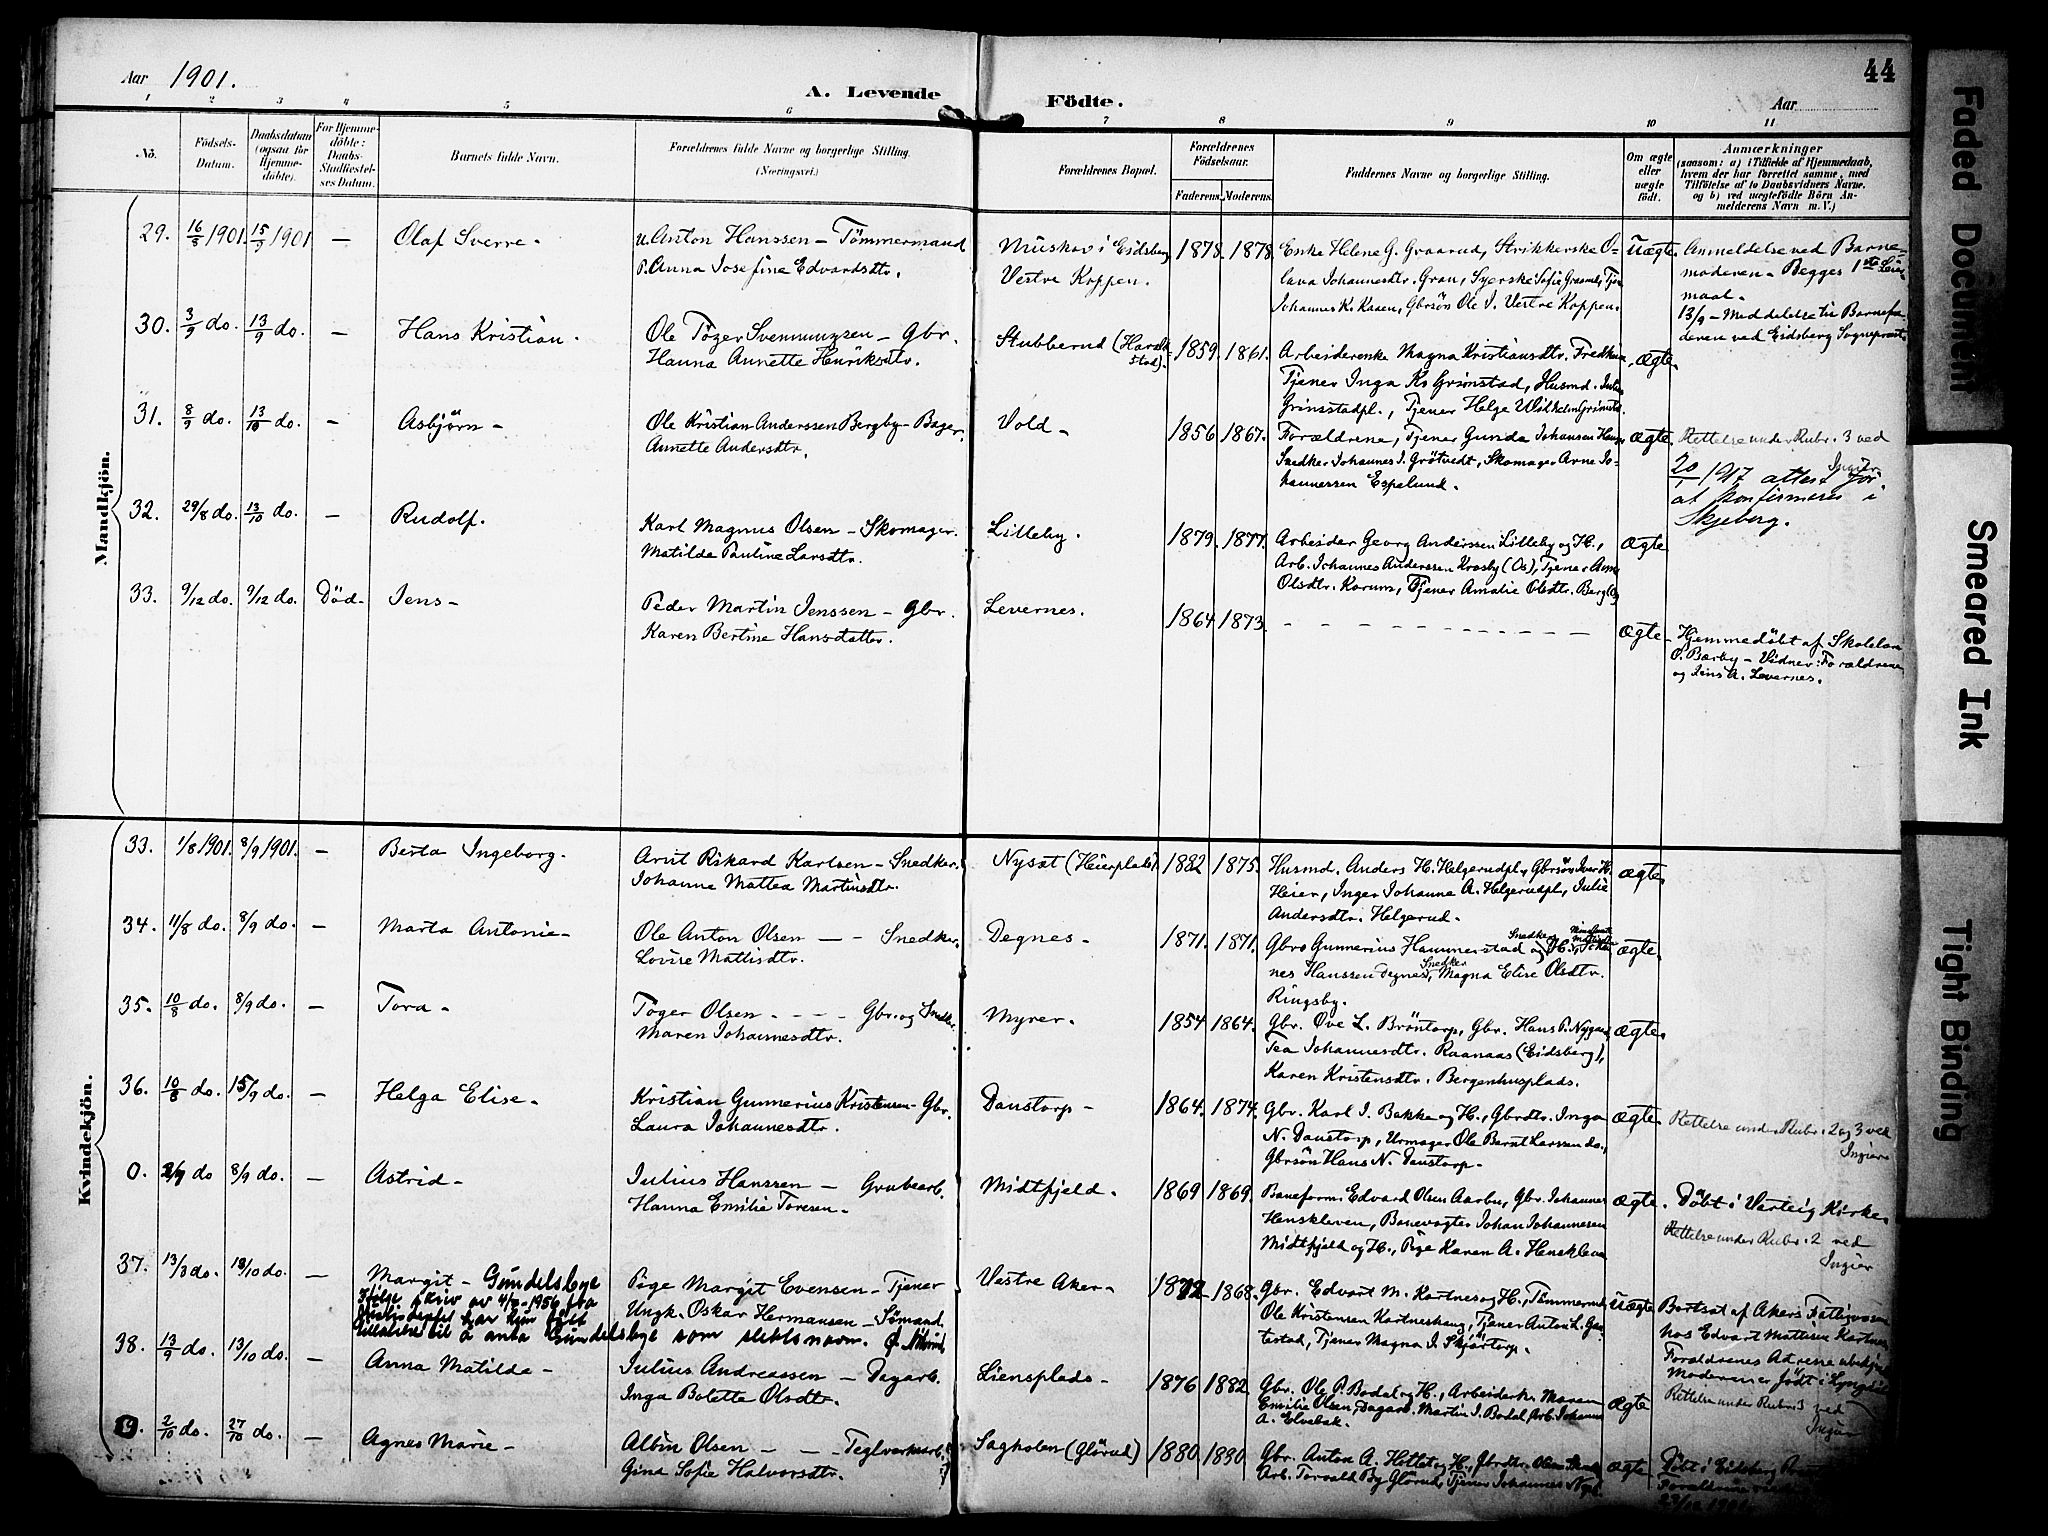 Aar 1901.
A. Levende Födte.
Aar
44
1 2 3 4 5 6 7 8 9 10 11
No.
Födsels-
Datum.
Daabsdatum
(ogsaa for
Hjemme-
döbte).
For Hjemme-
döbte:
Daabs-
Stadfæstel-
ses Datum.
Barnets fulde Navn.
Forældrenes fulde Navne og borgerlige Stilling.
(Næringsvei.)
Forældrenes Bopæl.
Forældrenes
Födselsaar.
Faderens. Moderens.
Faddernes Navne og borgerlige Stilling.
Om ægte
eller
uægte
födt.
Anmærkninger
(saasom: a) i Tilfælde af Hjemmedaab,
hvem der har forrettet samme, med
Tilföielse af to Daabsvidners Navne.
og b) ved uægtefödte Börn An-
melderens Navn m. V.)
Mandkjön.
29. 16/8 1901. 15/9 1901 — Olaf Sverre. U. Anton Hanssen — Tömmermand
P. Anna Josefine Edvardsdtr.
Muskov i Eidsberg
Vestre Koppen.
1878. 1878.
Enke Helene G. Graarud, Strikkerske O-
lava Johannesdtr. Gran, Syerske Sofie
Johannes K. Kasen, Gbrsön Ole J. Vestre Koppen.
Uægte.
Anmeldelse ved Barne-
moderen. Begges 1ste Leier-
maal.
13/9 — Meddelelse til Barnefa-
deren ved Eidsberg Sogneprest
30. 3/9 do. 13/9 do. — Hans Kristian. Ole Töger Svennungsen — Gbr.
Hanna Annette Henriksdtr.
Stubberud (Harald-
stad).
1859. 1861.
Arbeiderenke Magna Kristiansdtr.
Tjener Inga K. Grimstad, Husmd. Julius
Grimstadpl., Tjener Helge Wilhelm Grimstad.
ægte.
31. 8/9 do. 13/10 do. — Asbjörn — Ole Kristian Anderssen Bergby — Bager.
Annette Andersdtr.
Vold —
1856 1867.
Forældrene, Tjener Gunda Johansen
Snedker Johannes J. Grötvedt, Skomager Arne Jo-
hannessen Espelund.
ægte.
Rettelse under Rubr. 3 ved
Ingier.
20/1 1917 attest for
at konfirmeres i
Skjeberg.
32. 29/8 do. 13/10 do. — Rudolf. Karl Magnus Olsen — Skomager.
Matilde Pauline Larsdtr.
Lilleby.
1879. 1877.
Arbeider Georg Anderssen Lilleby og H.,
Arb. Johannes Anderssen Krosby (Os), Tjener
Olsdtr. Korum, Tjener Amalie Olsdtr. Berg
ægte
33. 9/12 do. 9/12 do. Död — Jens — Peder Martin Jenssen — Gbr.
Karen Bertine Hansdatter.
Levernes.
1864 1873.
ægte
Hjemmedöbt af
Bærby — Vidner: Forældrene
og Jens A. Levernes.
Kvindekjön.
33. 1/8 1901. 8/9 1901. — Berta Ingeborg. Arnt Rikard Karlsen — Snedker.
Johanne Mattea Martinsdtr.
Nysæt (Heierplads).
1882 1875.
Husmd. Anders H. Helgerudpl., Gbrsön Iver H.
Heier, Inger Johanne A. Helgerudpl., Julie
Andersdtr. Helgerud.
ægte.
34. 11/8 do. 8/9 do. — Marta Antonie — Ole Anton Olsen — Snedker.
Lovise Mattisdtr.
Degnes —
1871. 1871.
Gbr. Gunnerius Hammerstad og H.,
nes Hanssen Degnes, Snedker Magna Elise Olsdtr.
Ringsby.
ægte.
35. 10/8 do. 8/9 do. — Tora — Töger Olsen — Gbr. og Snedker.
Maren Johannesdtr.
Myrer.
1854 1864.
Gbr. Ove L. Bröntorp, Gbr. Hans P. Nygaard,
Tea Johannesdtr. Raanaas (Eidsberg),
Karen Kristensdtr. Bergenhusplads.
ægte.
36. 10/8 do. 15/9 do. — Helga Elise — Kristian Gunnerius Kristensen — Gbr.
Laura Johannesdtr.
Danstorp —
1864. 1874.
Gbr. Karl J. Bakke og H., Gbrdtr. Inga
N. Danstorp, Urmager Ole Bernt Larssen do.,
Gbrsön Hans N. Danstorp.
ægte.
Rettelse under Rubr. 2 og 3 ved
Ingier
0. do 8/9 do. — Astrid — Julius Hanssen — Grubearb.
Hanna Emilie Toresen —
Midtfjeld.
1869 1869.
Baneform. Edvard Olsen Aarbu, Gbr. Johannes
Henskleven, Banevogter Johan Johannesen
Midtfjeld og H., Pige Karen A. Henskleven
ægte.
Döbt i Varteig Kirke.
Rettelse under Rubr. 2 ved
Ingier
37. 13/3 do. 13/10 do. — Margit — Gundelsbye
Ifölge skriv av 1956 fra
Justisdeptet har hun fått
tillatelse til å anta Gundelsbye som slektsnavn.
Pige Margit Evensen — Tjener
Ungk. Oskar Hermansen — Sömand
Vestre Aker —
1872 1868.
Gbr. Edvart M. Kartnes og H.,
Ole Kristensen Kartneshaug, Tjener Anton L.
testad, Tjener Magna J. Skjörtorp.
Uægte
Bortsat af Akers Fattigvæsen
hos Edvart Mattisen Kartnes
Forældrenes Adresse
Moderen er födt i
38. 13/9 do. 13/10 do. — Anna Matilde — Julius Andreassen — Dagarb.
Inga Bolette Olsdtr.
Liensplads —
1876 1882.
Gbr. Ole P. Bodal og H., Arbeiderk. Maren
Emilie Olsen, Dagarb. Martin J. Bodal, Arb. Johannes
A. Elvebak.
ægte
Rettelse under Rubr. 3 ved
Ingier
39. 2/10 do. 27/10 do. — Agnes Marie — Albin Olsen — Teglverksarb.
Gina Sofie Halvorsdtr.
Sagholen (Glörud)
1880 1880.
Gbr. Anton A. Hettet og H., Gbrdtr.
Arb. Torvald By Glörud, Tjener Johannes
ægte.
Döbt i Eidsberg
Forældrene
Faded Document
Smeared Ink
Tight Binding